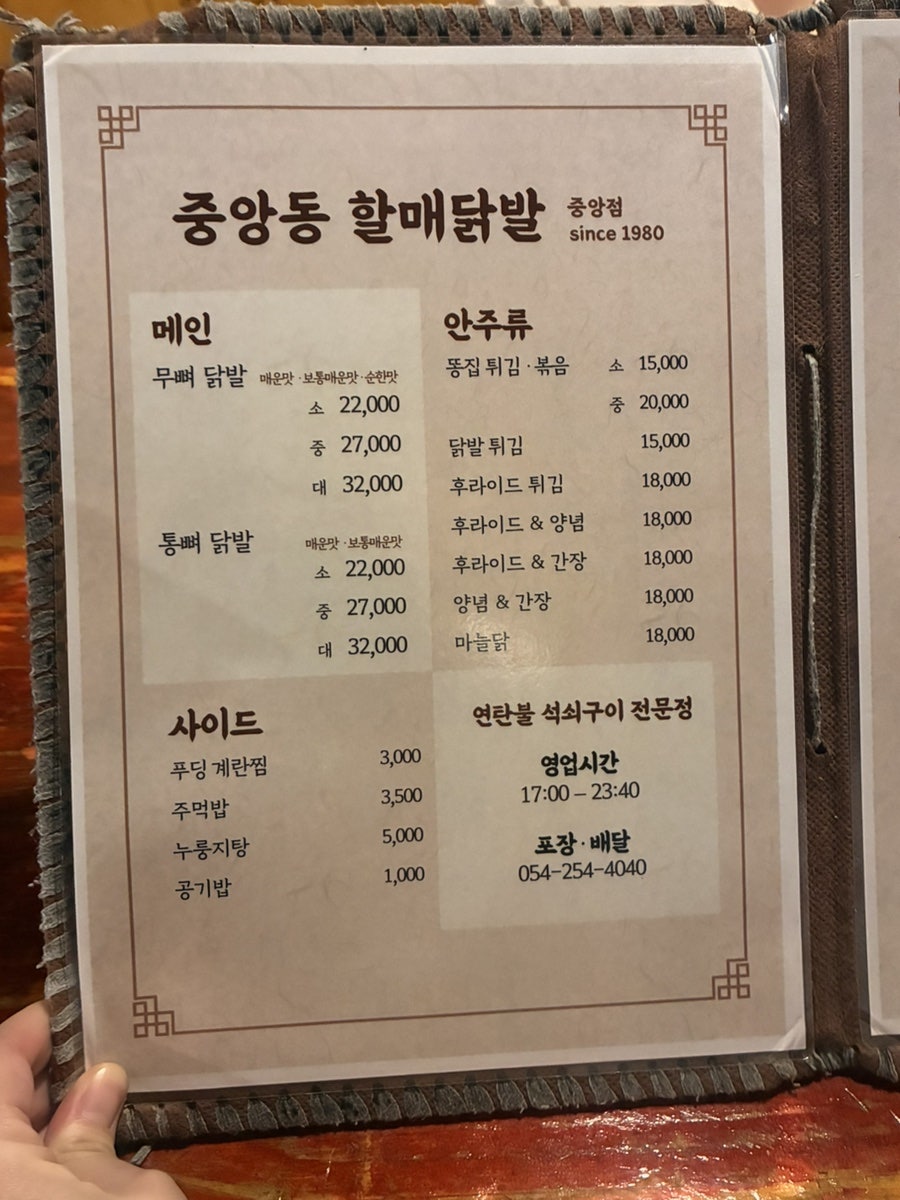 중앙동 할매닭발 중앙점
since 1980
메인
무뼈 닭발 매운맛 · 보통매운맛 · 순한맛
소 22,000
중 27,000
대 32,000
통뼈 닭발 매운맛 · 보통매운맛
소 22,000
중 27,000
대 32,000
안주류
똥집 튀김 · 볶음 소 15,000
중 20,000
닭발 튀김 15,000
후라이드 튀김 18,000
후라이드 & 양념 18,000
후라이드 & 간장 18,000
양념 & 간장 18,000
마늘닭 18,000
사이드
푸딩 계란찜 3,000
주먹밥 3,500
누룽지탕 5,000
공기밥 1,000
연탄불 석쇠구이 전문정
영업시간
17:00 – 23:40
포장 · 배달
054-254-4040